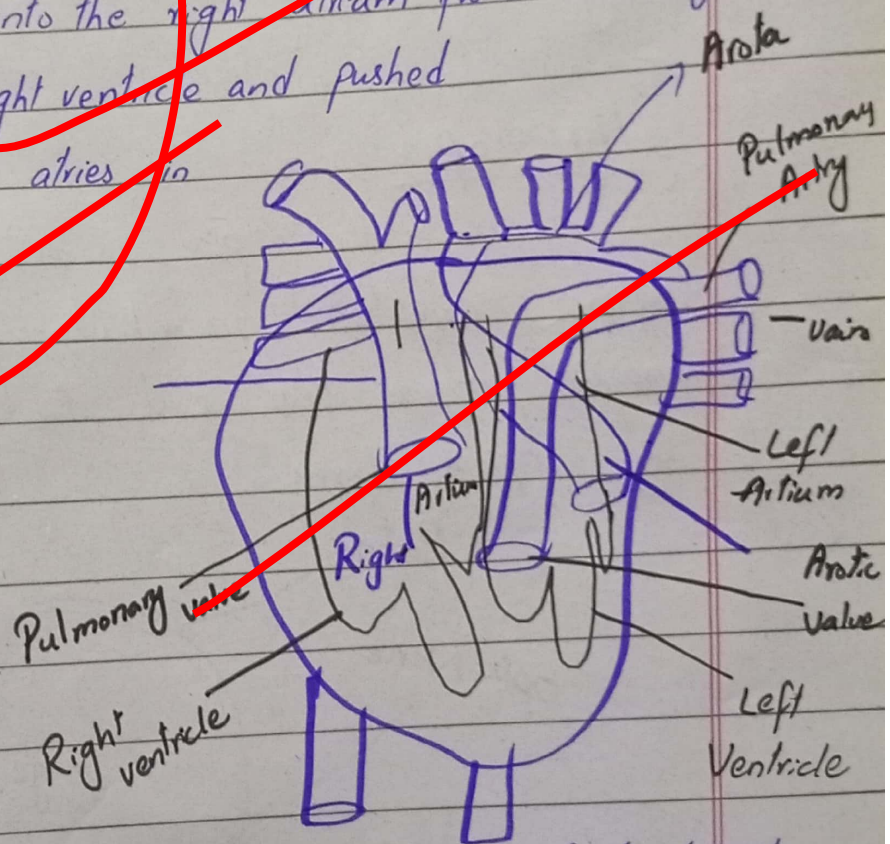 nto the right
ght ventricle and pushed
atries in
Arota
Pulmonary
Artry
vain
Left
Artium
Artium
Right
Arotic
value
Pulmonary value
Right
ventricle
Left
Ventricle